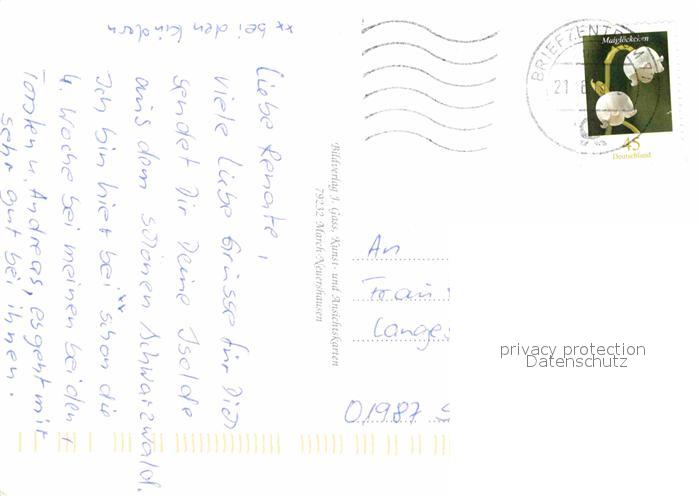 xx bei den Kindern
Liebe Renate,
viele liebe Grüsse für Dich
sendet Dir Deine Isolde
aus dem schönen Schwarzwald.
Ich bin hier bei xx schon die
4. Woche bei meinen beiden
Torsten u. Andreas, es geht mir
sehr gut bei ihnen.
Bildverlag J. Gass, Kunst- und Ansichtskarten
79232 March-Neuershausen
BRIEFZENTRUM
21
Maiglöckchen
45
Deutschland
An
Frau
Lange
01987
privacy protection
Datenschutz